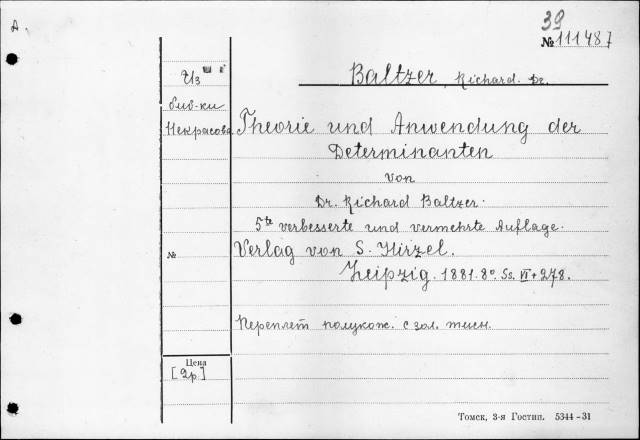 А.
39
№ 111487
Из
Baltzer, Richard. Dr.
биб-ки
Некрасова
Theorie und Anwendung der
Determinanten
von
Dr. Richard Baltzer.
5te verbesserte und vermehrte Auflage.
№
Verlag von S. Hirzel.
Leipzig. 1881. 8º. Ss. VI + 278.
Переплет полукож. с зол. тисн.
Цена
[2р.]
Томск, 3-я Гостип. 5344-31